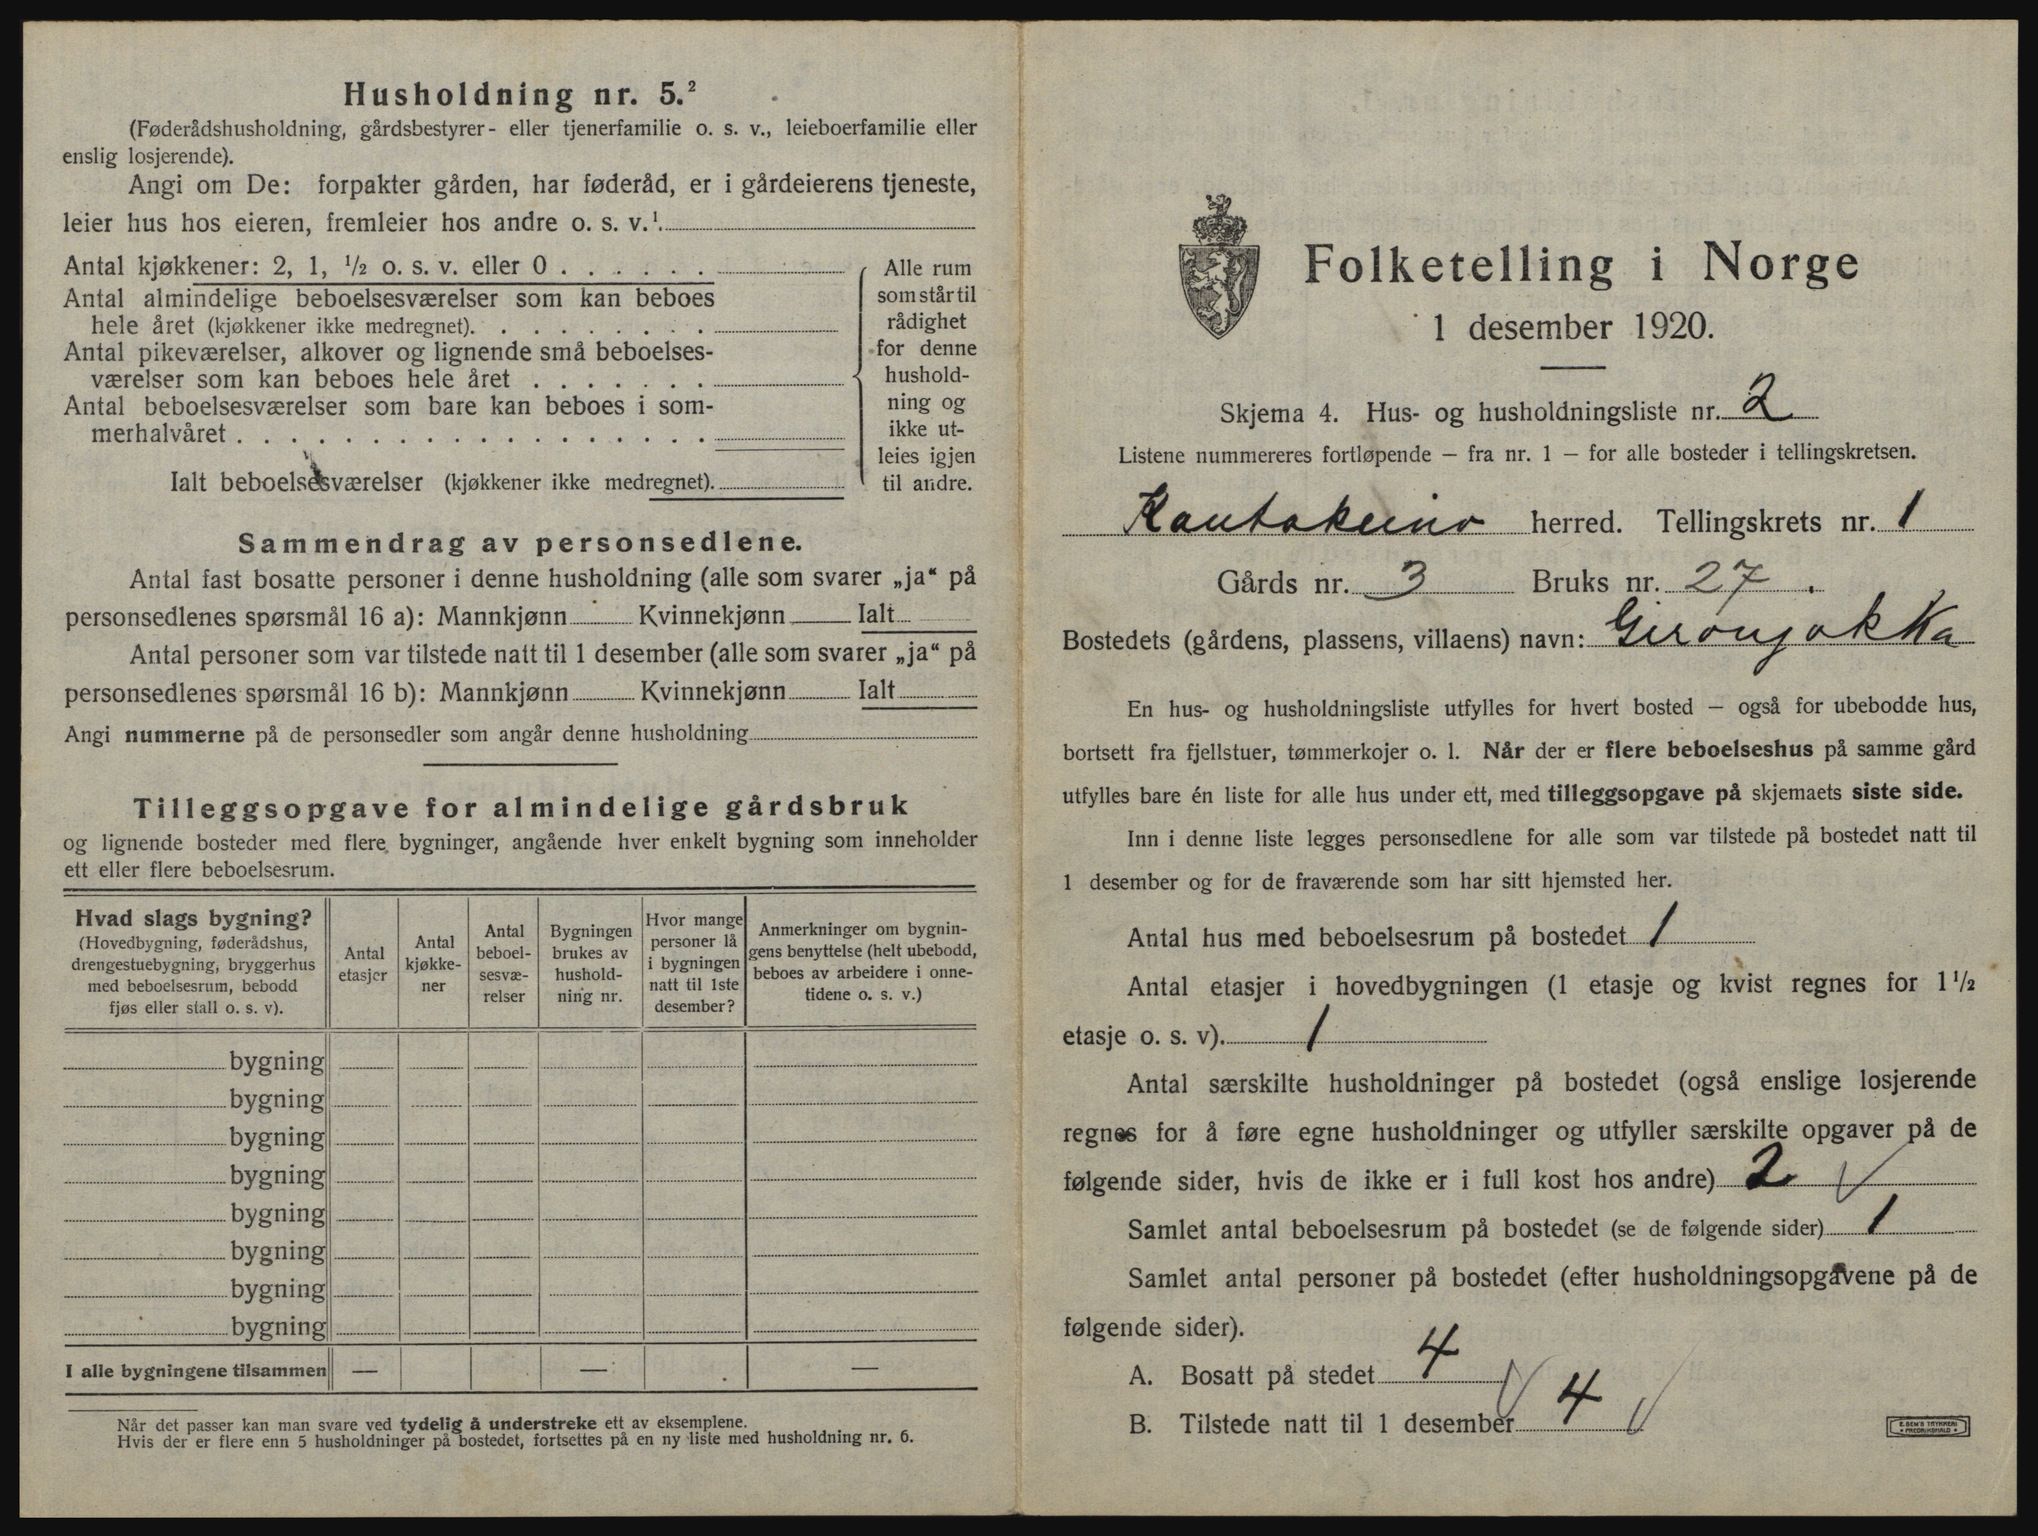 Husholdning nr. 5.²
(Føderådshusholdning, gårdsbestyrer- eller tjenerfamilie o. s. v., leieboerfamilie eller
enslig losjerende).
Angi om De: forpakter gården, har føderåd, er i gårdeierens tjeneste,
leier hus hos eieren, fremleier hos andre o. s. v.¹.
Antal kjøkkener: 2, 1, ½ o. s. v. eller 0 . . . . . .
Antal almindelige beboelsesværelser som kan beboes
hele året (kjøkkener ikke medregnet). . . . . . . . .
Antal pikeværelser, alkover og lignende små beboelses-
værelser som kan beboes hele året . . . . . . .
Antal beboelsesværelser som bare kan beboes i som-
merhalvåret . . . . . . . . . . . . . . . . . .
Ialt beboelsesværelser (kjøkkener ikke medregnet).
Alle rum
som står til
rådighet
for denne
hushold-
ning og
ikke ut-
leies igjen
til andre.
Sammendrag av personsedlene.
Antal fast bosatte personer i denne husholdning (alle som svarer „ja“ på
personsedlenes spørsmål 16 a): Mannkjønn Kvinnekjønn Ialt
Antal personer som var tilstede natt til 1 desember (alle som svarer „ja“ på
personsedlenes spørsmål 16 b): Mannkjønn Kvinnekjønn Ialt
Angi nummerne på de personsedler som angår denne husholdning
Tilleggsopgave for almindelige gårdsbruk
og lignende bosteder med flere bygninger, angående hver enkelt bygning som inneholder
ett eller flere beboelsesrum.
Hvad slags bygning?
(Hovedbygning, føderådshus,
drengestuebygning, bryggerhus
med beboelsesrum, bebodd
fjøs eller stall o. s. v).
Antal
etasjer
Antal
kjøkke-
ner
Antal
beboel-
sesvæ-
relser
Bygningen
brukes av
hushold-
ning nr.
Hvor mange
personer lå
i bygningen
natt til 1ste
desember?
Anmerkninger om bygnin-
gens benyttelse (helt ubebodd,
beboes av arbeidere i onne-
tidene o. s. v.)
bygning
bygning
bygning
bygning
bygning
bygning
bygning
bygning
I alle bygningene tilsammen — — —
Når det passer kan man svare ved tydelig å understreke ett av eksemplene.
Hvis der er flere enn 5 husholdninger på bostedet, fortsettes på en ny liste med husholdning nr. 6.
Folketelling i Norge
1 desember 1920.
Skjema 4. Hus- og husholdningsliste nr. 2
Listene nummereres fortløpende — fra nr. 1 — for alle bosteder i tellingskretsen.
Kautokeino herred. Tellingskrets nr. 1
Gårds nr. 3 Bruks nr. 27.
Bostedets (gårdens, plassens, villaens) navn: Gironjokka
En hus- og husholdningsliste utfylles for hvert bosted — også for ubebodde hus,
bortsett fra fjellstuer, tømmerkojer o. l. Når der er flere beboelseshus på samme gård
utfylles bare én liste for alle hus under ett, med tilleggsopgave på skjemaets siste side.
Inn i denne liste legges personsedlene for alle som var tilstede på bostedet natt til
1 desember og for de fraværende som har sitt hjemsted her.
Antal hus med beboelsesrum på bostedet 1
Antal etasjer i hovedbygningen (1 etasje og kvist regnes for 1½
etasje o. s. v). 1
Antal særskilte husholdninger på bostedet (også enslige losjerende
regnes for å føre egne husholdninger og utfyller særskilte opgaver på de
følgende sider, hvis de ikke er i full kost hos andre) 2 √
Samlet antal beboelsesrum på bostedet (se de følgende sider) 1
Samlet antal personer på bostedet (efter husholdningsopgavene på de
følgende sider).
A. Bosatt på stedet 4 √
B. Tilstede natt til 1 desember 4 √
E. SEM'S TRYKKERI
FREDRIKSHALD